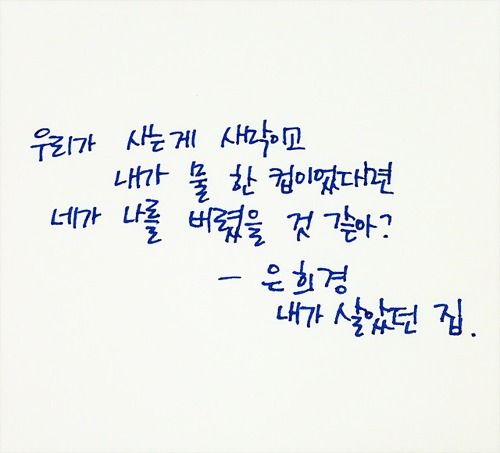 우리가 사는게 사막이고
내가 물 한 컵이었다면
네가 나를 버렸을 것 같아?
- 은희경
내가 살았던 집.